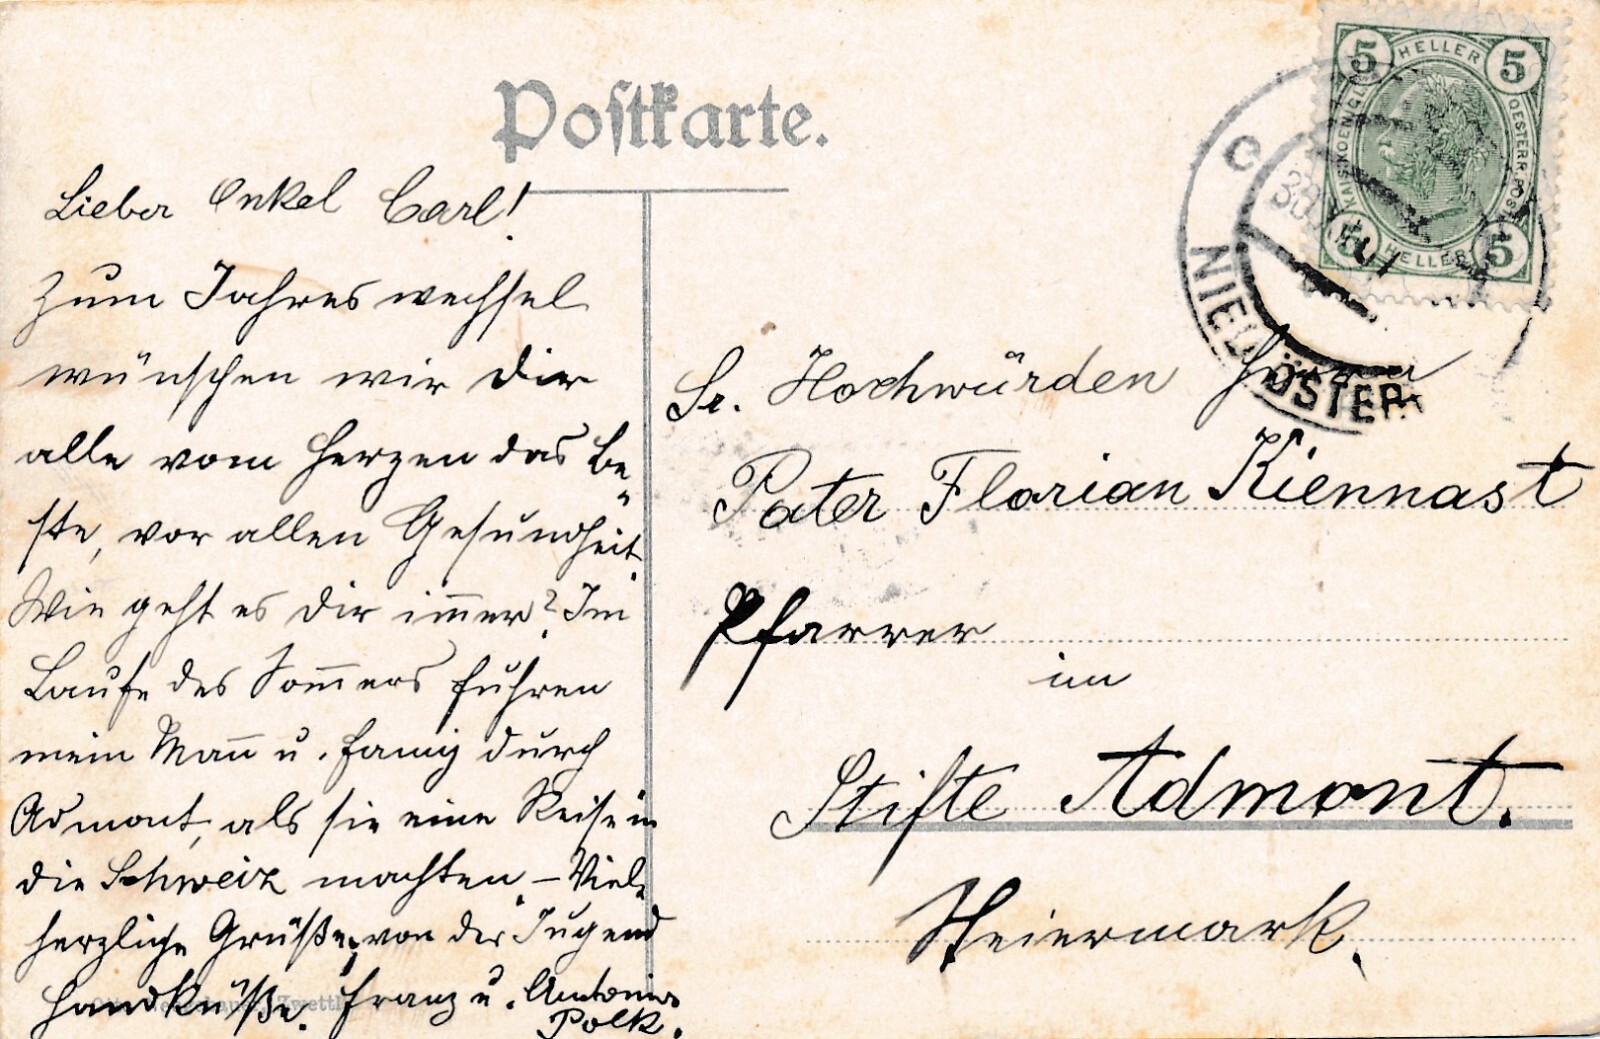 Postkarte.
Lieber Onkel Carl!
Zum Jahreswechsel
wünschen wir Dir
alle vom Herzen das Be-
ste, vor allen Gesundheit.
Wie geht es Dir immer? Im
Laufe des Som̅ers fuhren
mein Man̅ u. Fanny durch
Admont, als sie eine Reise in
die Schweiz machten. – Viele
herzliche Grüße, von der Jugend
Handküße. Franz u. Antonia
Polk.
5 HELLER 5
KAIS. KOENIGL. OESTERR. POST
5 HELLER 5
30.
ÖSTER
Sr. Hochwürden Herrn
Pater Florian Kiennast
Pfarrer
im
Stifte Admont.
Steiermark.